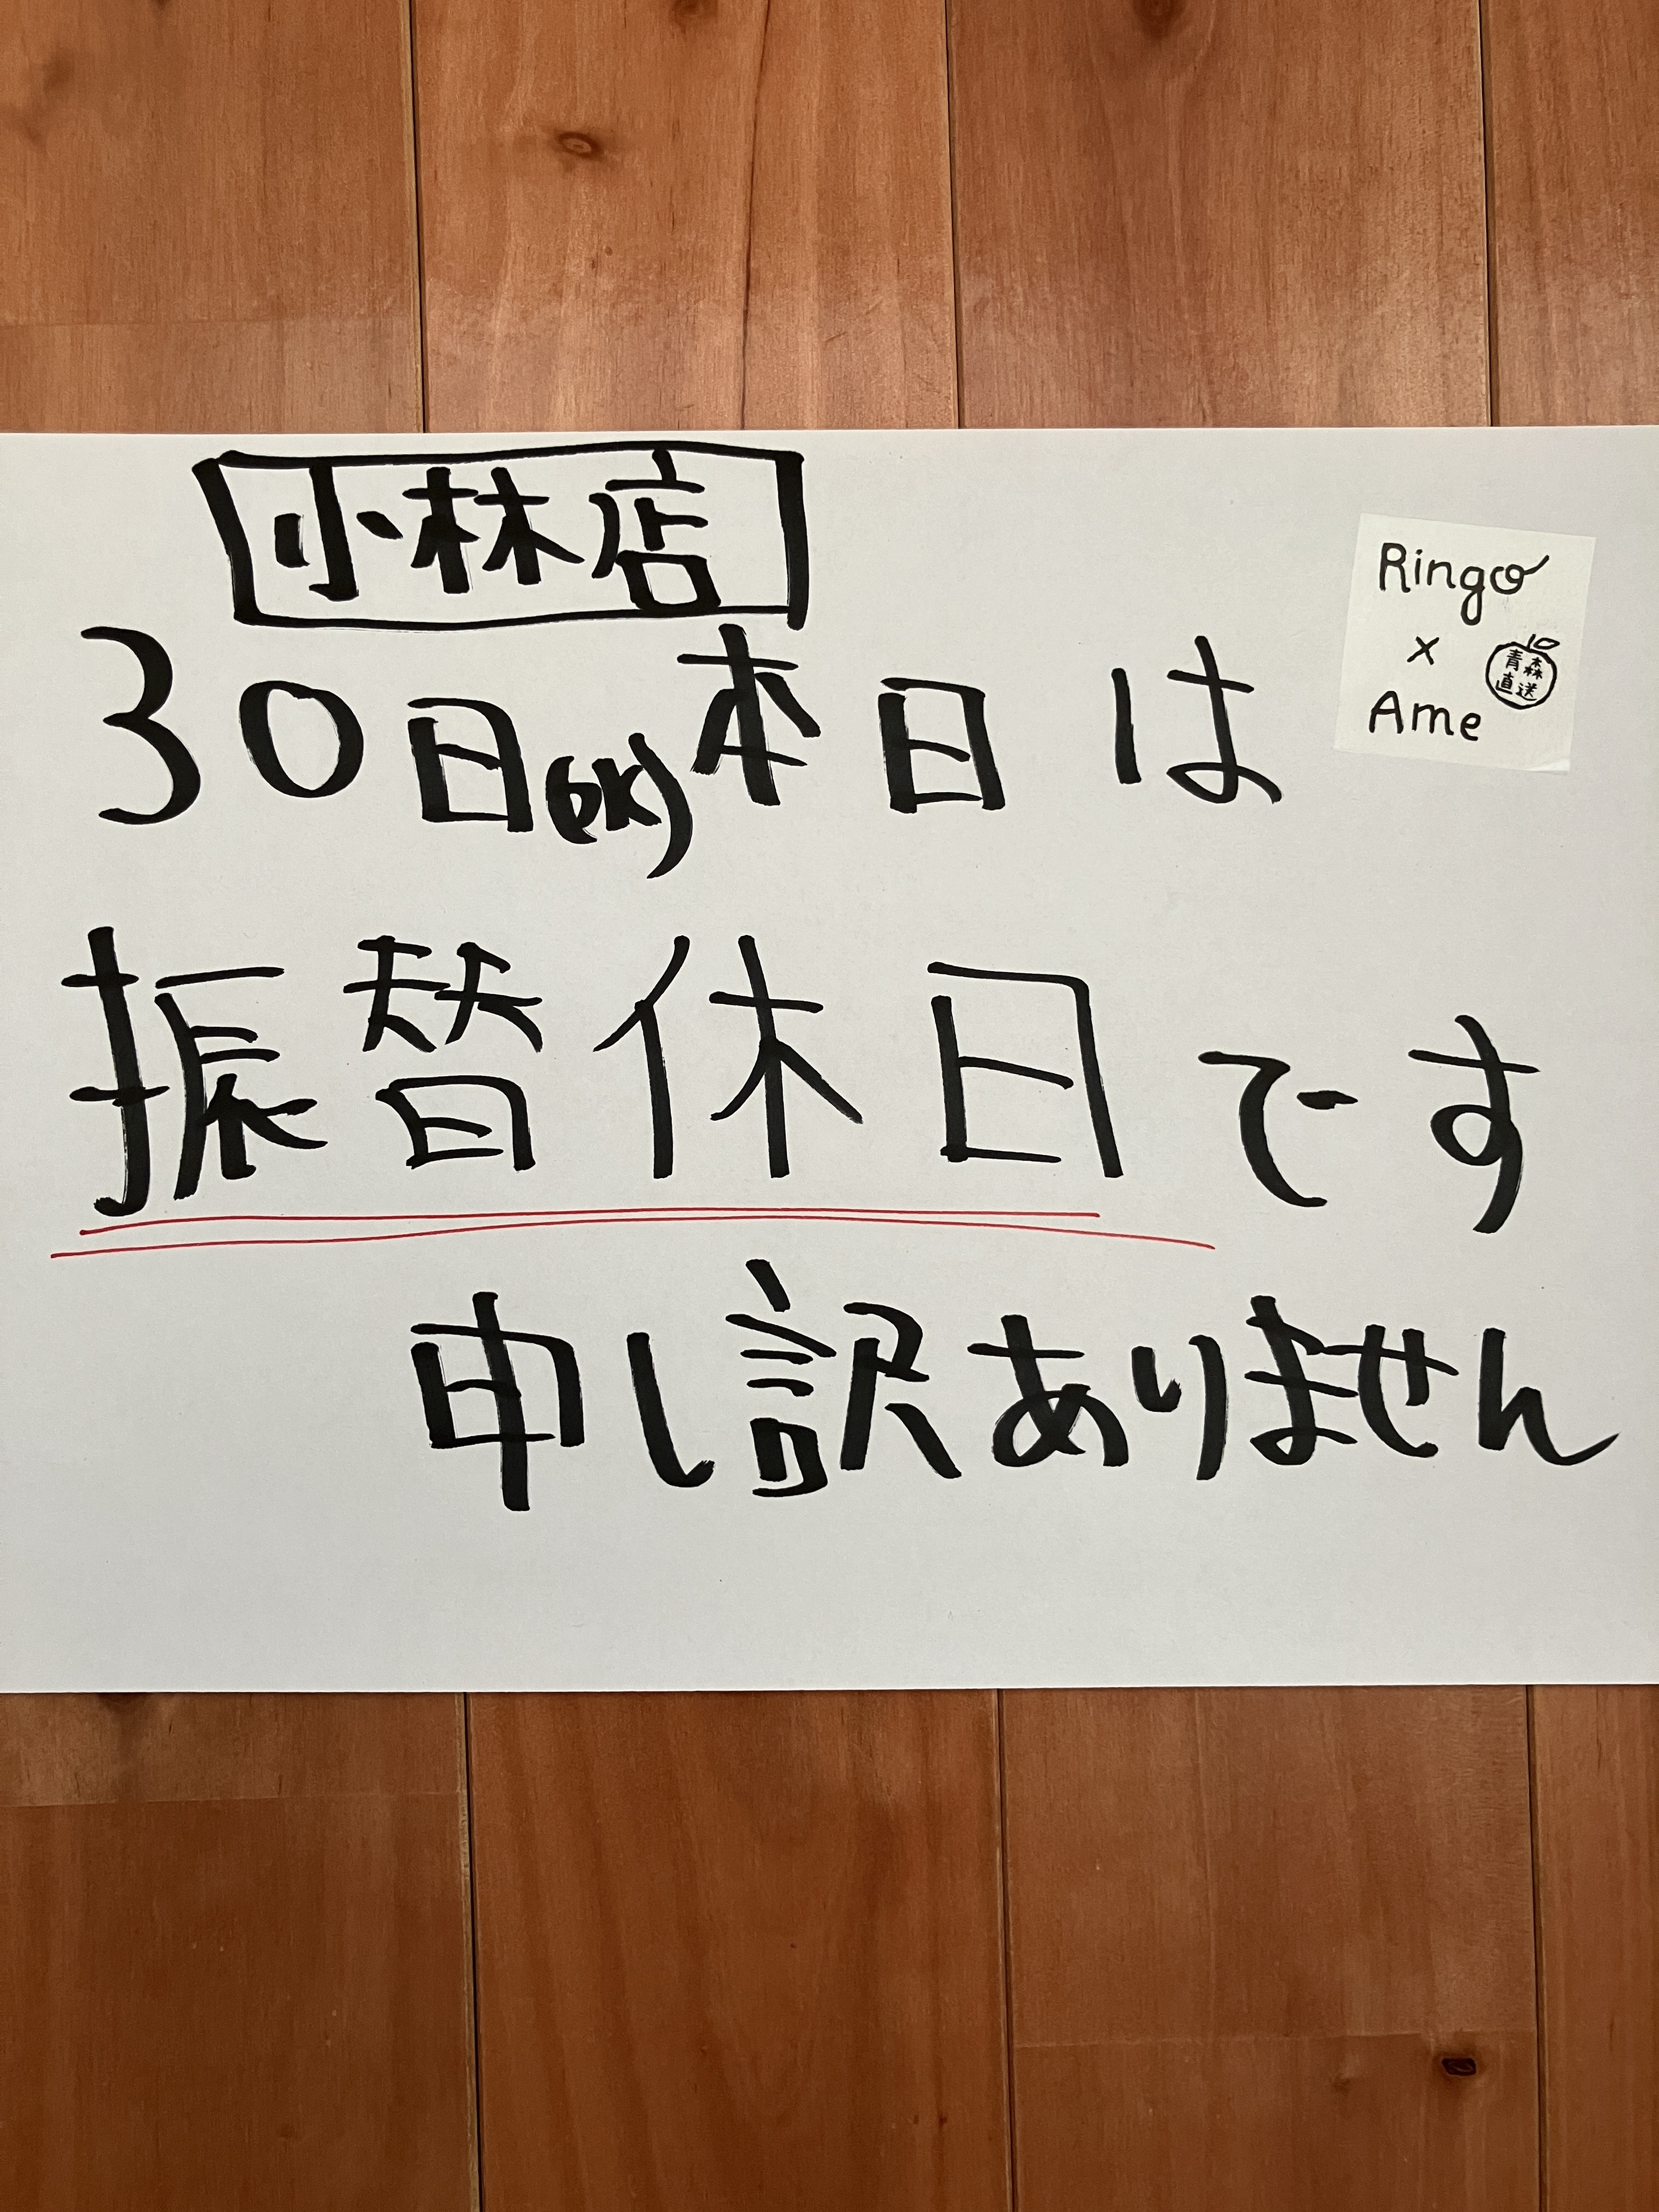 小林店
30日(水)本日は
振替休日です
申し訳ありません
Ringo
×
Ame
青森
直送